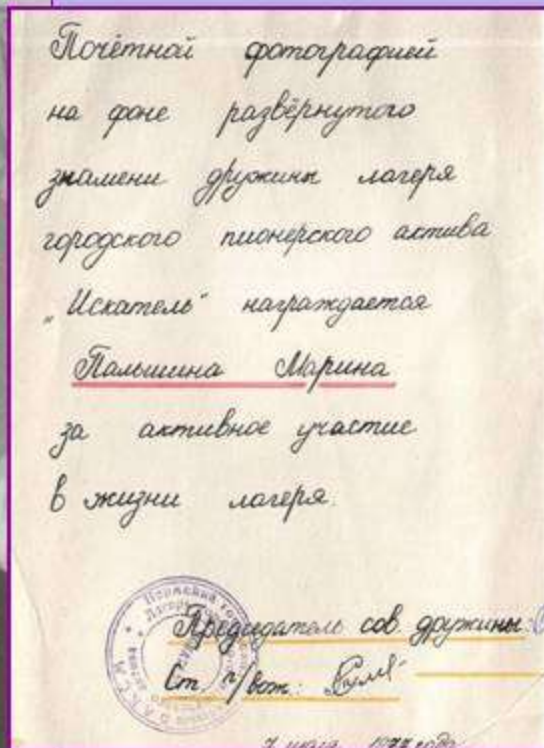 Почётной фотографией
на фоне развёрнутого
знамени дружины лагеря
городского пионерского актива
"Искатель" награждается
Палшина Марина
за активное участие
в жизни лагеря.
Председатель сов дружины:
Ст. п/вож:
7 июля 1977 года.